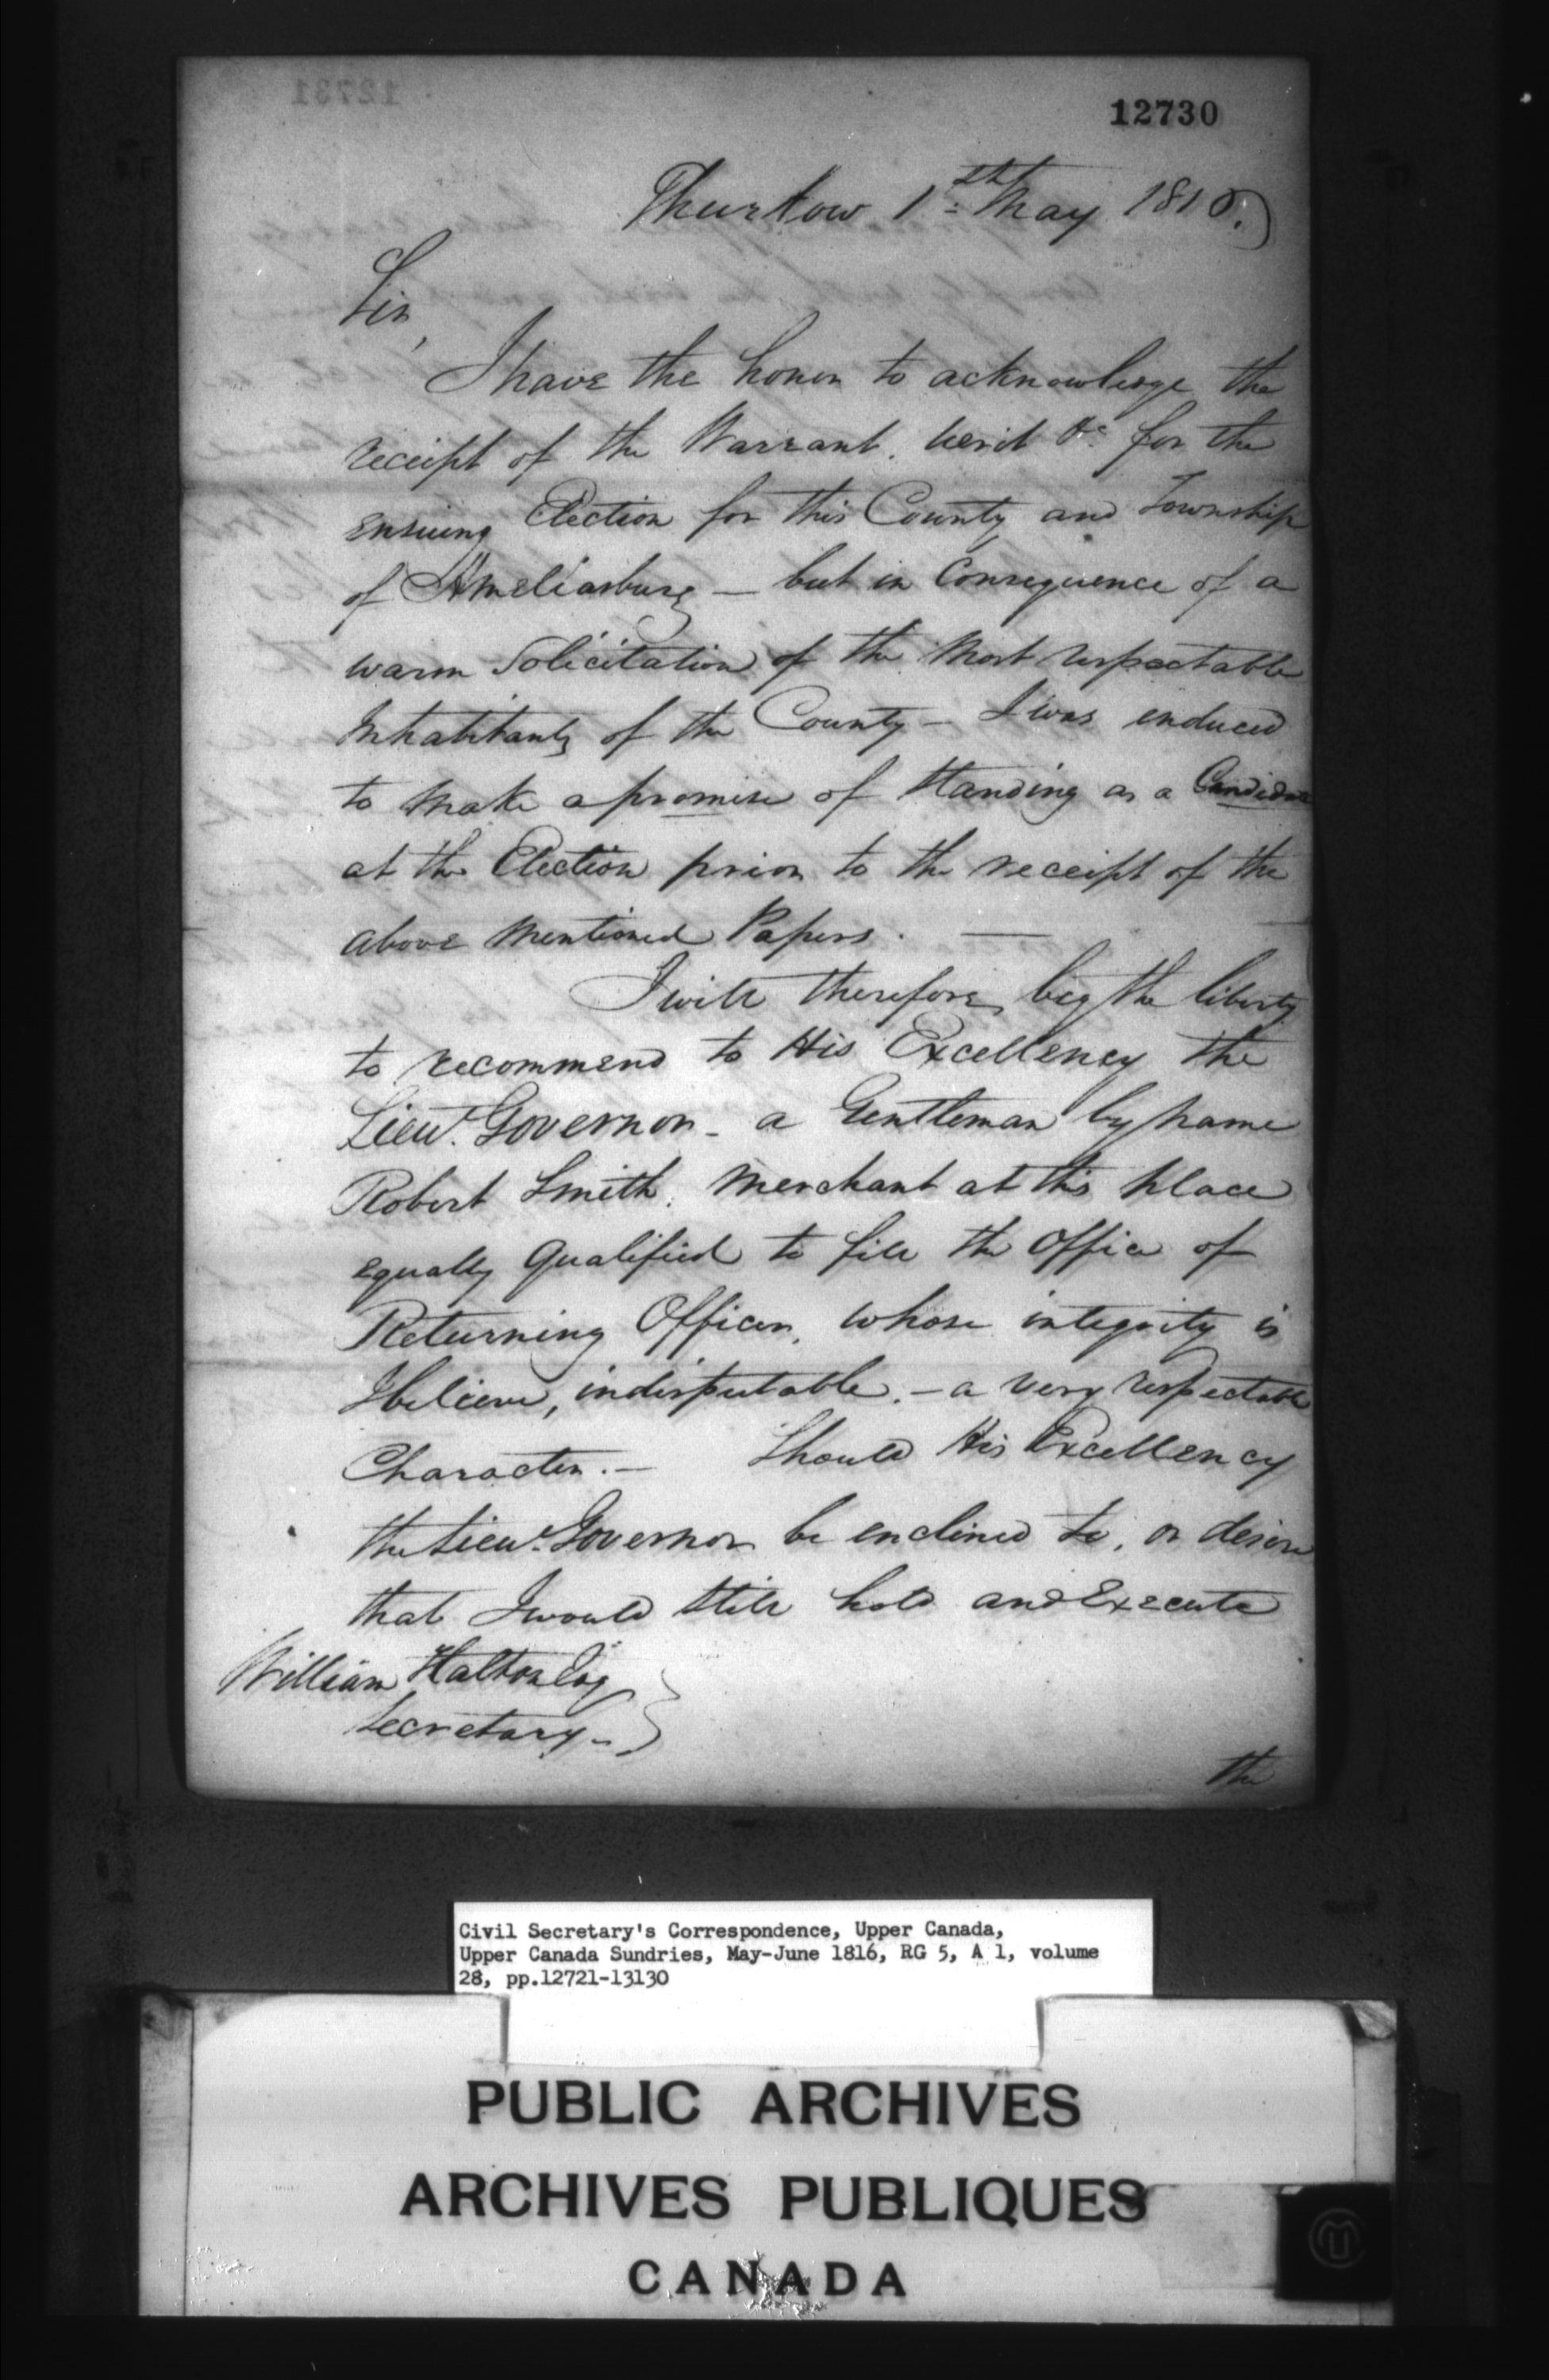 12730
Thurlow 1th May 1816.
Sir,
I have the honor to acknowledge the
receipt of the Warrant. Writ &c for the
ensuing Election for this County and Township
of Ameliasburg — but in Consequence of a
warm Solicitation of the Most respectable
Inhabitants of the County — I was enduced
to Make a promise of Standing as a Candidate
at the Election prior to the receipt of the
above Mentioned Papers. —
I will therefore beg the liberty
to recommend to His Excellency the
Lieut. Governor - a Gentleman by name
Robert Smith. Merchant at this place
equally Qualified to fill the Office of
Returning Officer, whose integrity is
I believe, indisputable. - a very respectable
Character. — Should His Excellency
the Lieut. Governor be enclined to, or desire
that I would Still hold and Execute
William Halton Esq
Secretary -
the
Civil Secretary's Correspondence, Upper Canada,
Upper Canada Sundries, May-June 1816, RG 5, A 1, volume
28, pp.12721-13130
PUBLIC ARCHIVES
ARCHIVES PUBLIQUES
CANADA